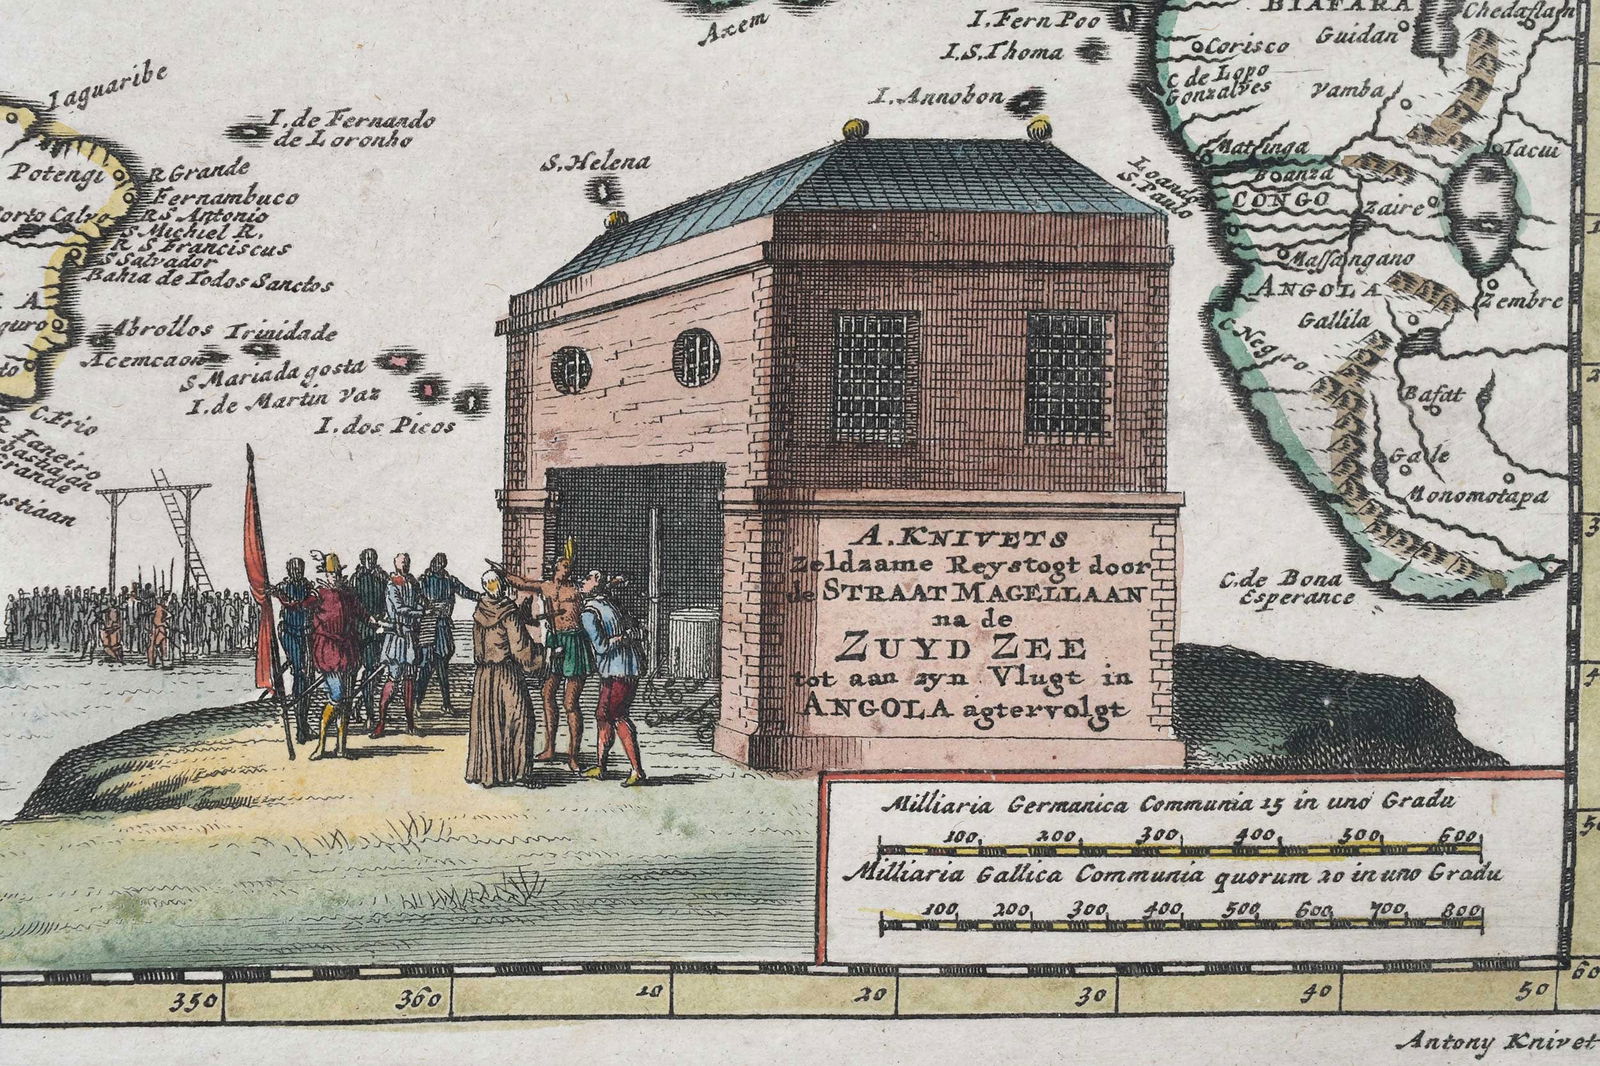 Axem
I. Fern Poo
I. S. Thoma
I. Annobon
BIAFARA
Chedaflan
Guidan
Corisco
C de Lopo
Gonzalves
Vamba
Matsinga
Boanza
CONGO
Zaire
Tacui
Loando
S. Paulo
Massangano
ANGOLA
Zembre
Gallila
C. Negro
Bafat
Gale
Monomotapa
C. de Bona
Esperance
Iaguaribe
I. de Fernando
de Loronho
S. Helena
Potengi
R. Grande
Fernambuco
Porto Calvo
R S Antonio
S Michiel R.
R S Franciscus
S Salvador
Bahia de Todos Sanctos
Abrollos Trinidade
Acemcaon
S Maria da gosta
I. de Martin vaz
I. dos Picos
C. Frio
R Ianeiro
Grande
A. KNIVETS
Zeldzame Reystogt door
de STRAAT MAGELLAAN
na de
ZUYD ZEE
tot aan zyn Vlugt in
ANGOLA agtervolgt
Milliaria Germanica Communia 15 in uno Gradu
100 200 300 400 500 600
Milliaria Gallica Communia quorum 20 in uno Gradu
100 200 300 400 500 600 700 800
350 360 10 20 30 40 50
60
Antony Knivet